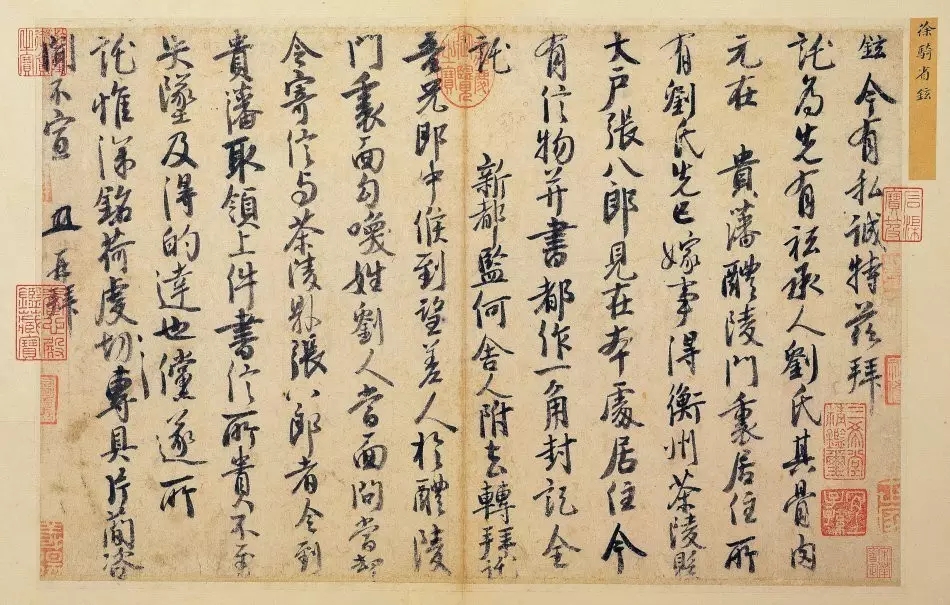 徐騎省鉉
鉉今有私誠特茲拜
託為先有祗承人劉氏其骨肉
元在 貴藩醴陵門裏居住所
有劉氏先已嫁事得衡州茶陵縣
大戶張八郎見在本處居住今
有信物并書都作一角封記全
託 新都監何舍人附去轉拜託
吾兄郎中候到望差人於醴陵
門裏面勾喚姓劉人當面問當却
令寄信与茶陵縣張八郎者令到
貴藩取領上件書信所貴不至
失墜及得的達也儻遂所
託惟深銘荷虔切專具片簡咨
聞不宣 再拜
石渠寶笈
三希堂精鑑璽
宜子孫
乾隆御覽之寶
養心殿鑑藏寶